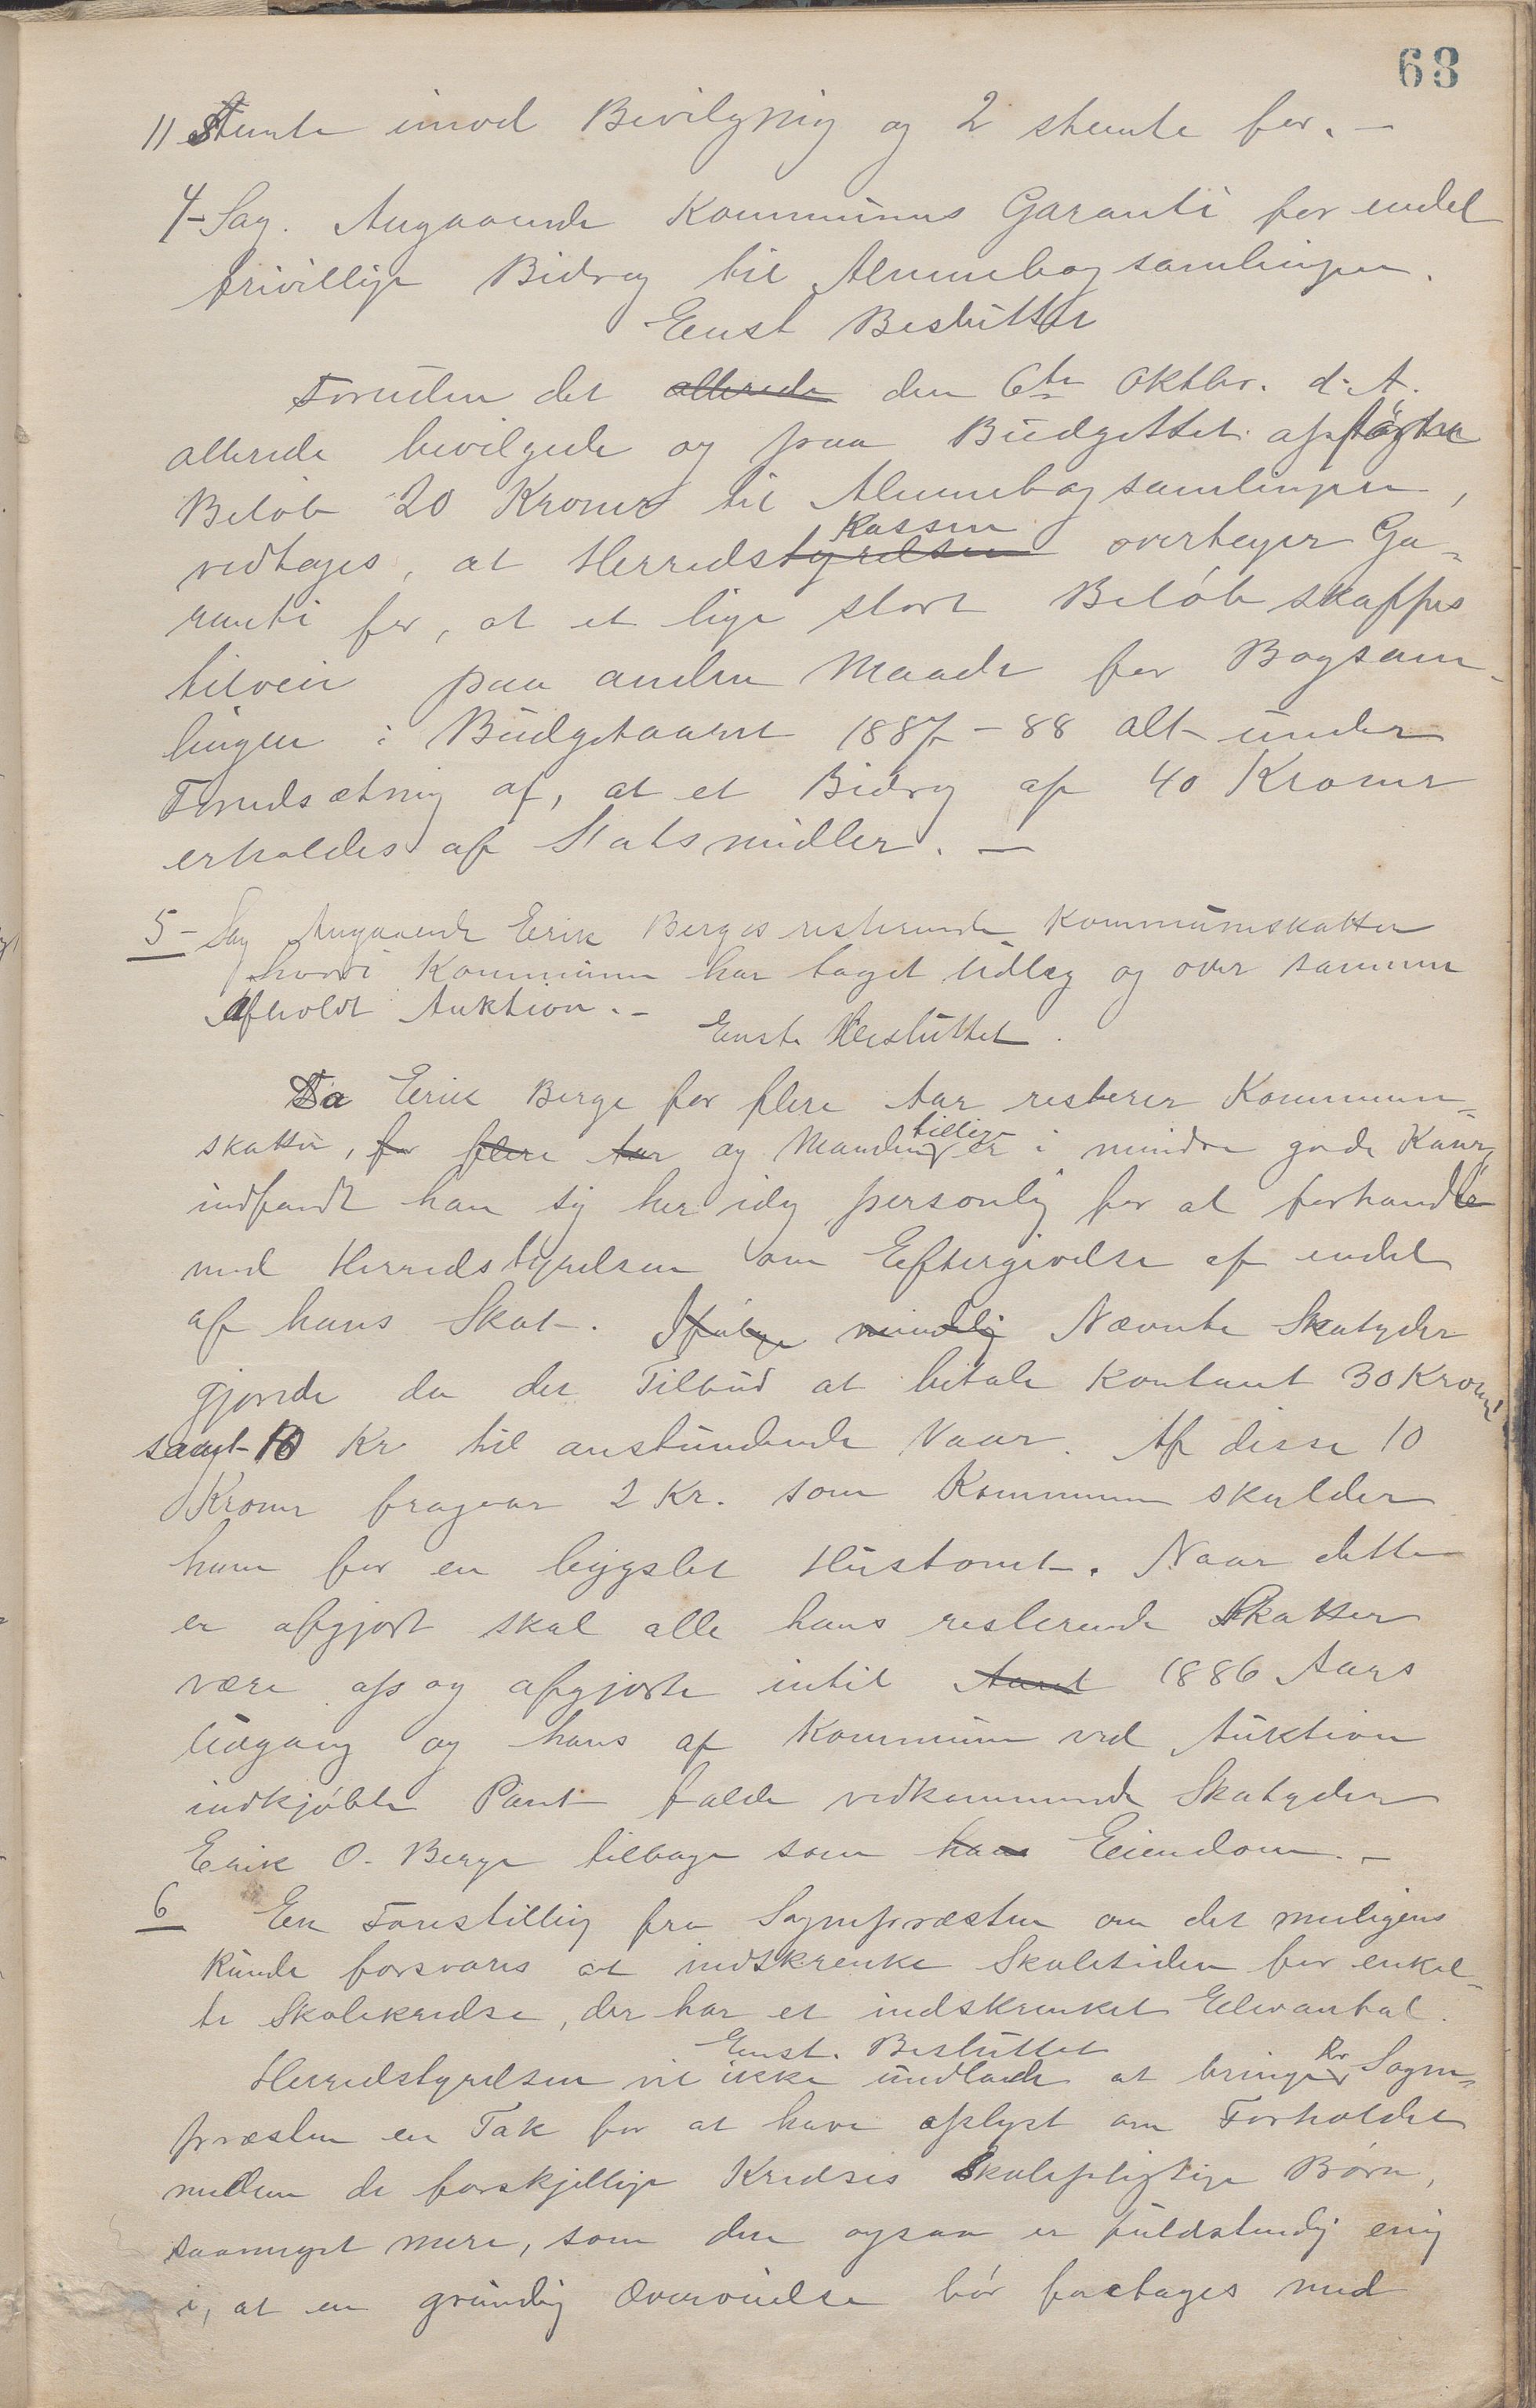 63
11 Stemte imod Bevilgning og 2 stemte for. —
4- Sag. Angaaende Kommunens Garanti for endel
frivillige Bidrag til Almuebogsamlingen.
Enst Besluttet
Foruden det allerede den 6te Oktbr. d. A.
allerede bevilgede og paa Budgettet opførte
Beløb 20 Kroner til Almuebogsamlingen,
Kassen
vedtages, at Herredstyrelsen overtager Ga-
ranti for, at et lige stort Beløb skaffes
tilveie paa anden Maade for Bogsam-
lingen i Budgetaaret 1887-88 alt under
Forudsætning af, at et Bidrag af 40 Kroner
erholdes af Statsmidler. —
5- Sag Angaaende Erik Berges resterende Kommuneskatter
hvori Kommunen har taget Udlæg og over samme
Afholdt Auktion. -
Enst. Besluttet.
Da Erik Berge for flere Aar resterer Kommune-
skatter, for flere Aar og Manden er i mindre gode Kaar,
tillige
indfandt han sig her idag personlig for at forhandle
med Herredstyrelsen om Eftergivelse af endel
af hans Skat. Ifølge mundlig Nævnte Skatyder
gjorde da det Tilbud at betale kontant 30 Kroner
samt 10 Kr til anstundende Vaar. Af disse 10
Kroner fragaar 2 Kr. som Kommunen skylder
ham for en bygslet Hustomt. Naar dette
er afgjort skal alle hans resterende Skatter
være af og afgjorte intil Aaret 1886 Aars
Udgang og hans af Kommunen ved Auktion
indkjøbte Pant falde vedkommende Skatyder
Erik O. Berge tilbage som hans Eiendom. -
6 En Forestilling fra Sognepræsten om det muligens
kunde forsvares at indskrenke Skoletiden for enkel-
te Skolekredse, der har et indskrenket Elevantal.
Enst. Besluttet
Herredstyrelsen vil ikke undlade at bringe Hr Sogne-
præsten en Tak for at have oplyst om Forholdet
mellem de forskjellige Kredses Skolepligtige Børn,
saameget mere, som den ogsaa er fuldstendig enig
i, at en grundig Overveielse bør foretages med